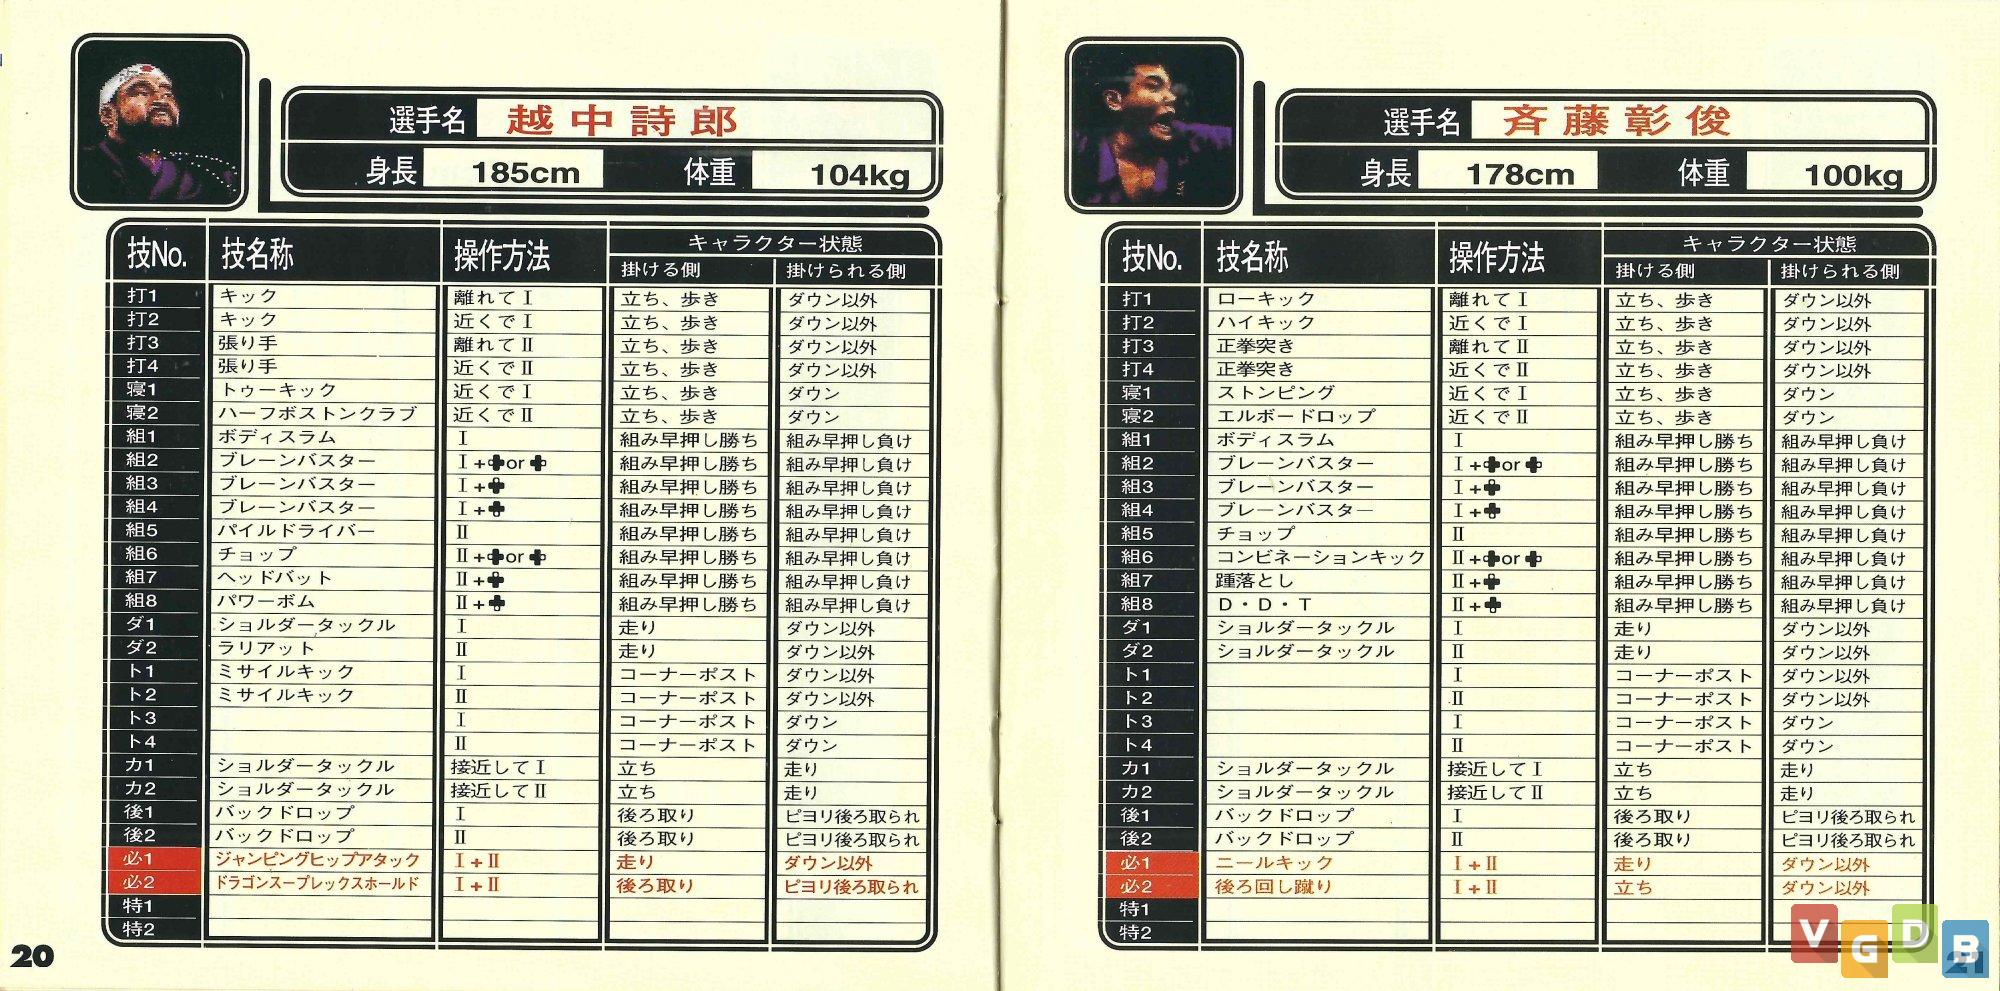 選手名 越中詩郎
身長 185cm 体重 104kg
技No. 技名称 操作方法 キャラクター状態
掛ける側 掛けられる側
打1 キック 離れてⅠ 立ち、歩き ダウン以外
打2 キック 近くでⅠ 立ち、歩き ダウン以外
打3 張り手 離れてⅡ 立ち、歩き ダウン以外
打4 張り手 近くでⅡ 立ち、歩き ダウン以外
寝1 トゥーキック 近くでⅠ 立ち、歩き ダウン
寝2 ハーフボストンクラブ 近くでⅡ 立ち、歩き ダウン
組1 ボディスラム Ⅰ 組み早押し勝ち 組み早押し負け
組2 ブレーンバスター Ⅰ+or 組み早押し勝ち 組み早押し負け
組3 ブレーンバスター Ⅰ+ 組み早押し勝ち 組み早押し負け
組4 ブレーンバスター Ⅰ+ 組み早押し勝ち 組み早押し負け
組5 パイルドライバー Ⅱ 組み早押し勝ち 組み早押し負け
組6 チョップ Ⅱ+or 組み早押し勝ち 組み早押し負け
組7 ヘッドバット Ⅱ+ 組み早押し勝ち 組み早押し負け
組8 パワーボム Ⅱ+ 組み早押し勝ち 組み早押し負け
ダ1 ショルダータックル Ⅰ 走り ダウン以外
ダ2 ラリアット Ⅱ 走り ダウン以外
ト1 ミサイルキック Ⅰ コーナーポスト ダウン以外
ト2 ミサイルキック Ⅱ コーナーポスト ダウン以外
ト3 Ⅰ コーナーポスト ダウン
ト4 Ⅱ コーナーポスト ダウン
カ1 ショルダータックル 接近してⅠ 立ち 走り
カ2 ショルダータックル 接近してⅡ 立ち 走り
後1 バックドロップ Ⅰ 後ろ取り ピヨリ後ろ取られ
後2 バックドロップ Ⅱ 後ろ取り ピヨリ後ろ取られ
必1 ジャンピングヒップアタック Ⅰ+Ⅱ 走り ダウン以外
必2 ドラゴンスープレックスホールド Ⅰ+Ⅱ 後ろ取り ピヨリ後ろ取られ
特1
特2
20
選手名 斉藤彰俊
身長 178cm 体重 100kg
技No. 技名称 操作方法 キャラクター状態
掛ける側 掛けられる側
打1 ローキック 離れてⅠ 立ち、歩き ダウン以外
打2 ハイキック 近くでⅠ 立ち、歩き ダウン以外
打3 正拳突き 離れてⅡ 立ち、歩き ダウン以外
打4 正拳突き 近くでⅡ 立ち、歩き ダウン以外
寝1 ストンピング 近くでⅠ 立ち、歩き ダウン
寝2 エルボードロップ 近くでⅡ 立ち、歩き ダウン
組1 ボディスラム Ⅰ 組み早押し勝ち 組み早押し負け
組2 ブレーンバスター Ⅰ+or 組み早押し勝ち 組み早押し負け
組3 ブレーンバスター Ⅰ+ 組み早押し勝ち 組み早押し負け
組4 ブレーンバスター Ⅰ+ 組み早押し勝ち 組み早押し負け
組5 チョップ Ⅱ 組み早押し勝ち 組み早押し負け
組6 コンビネーションキック Ⅱ+or 組み早押し勝ち 組み早押し負け
組7 踵落とし Ⅱ+ 組み早押し勝ち 組み早押し負け
組8 D・D・T Ⅱ+ 組み早押し勝ち 組み早押し負け
ダ1 ショルダータックル Ⅰ 走り ダウン以外
ダ2 ショルダータックル Ⅱ 走り ダウン以外
ト1 Ⅰ コーナーポスト ダウン以外
ト2 Ⅱ コーナーポスト ダウン以外
ト3 Ⅰ コーナーポスト ダウン
ト4 Ⅱ コーナーポスト ダウン
カ1 ショルダータックル 接近してⅠ 立ち 走り
カ2 ショルダータックル 接近してⅡ 立ち 走り
後1 バックドロップ Ⅰ 後ろ取り ピヨリ後ろ取られ
後2 バックドロップ Ⅱ 後ろ取り ピヨリ後ろ取られ
必1 ニールキック Ⅰ+Ⅱ 走り ダウン以外
必2 後ろ回し蹴り Ⅰ+Ⅱ 立ち ダウン以外
特1
特2
21
VGDB